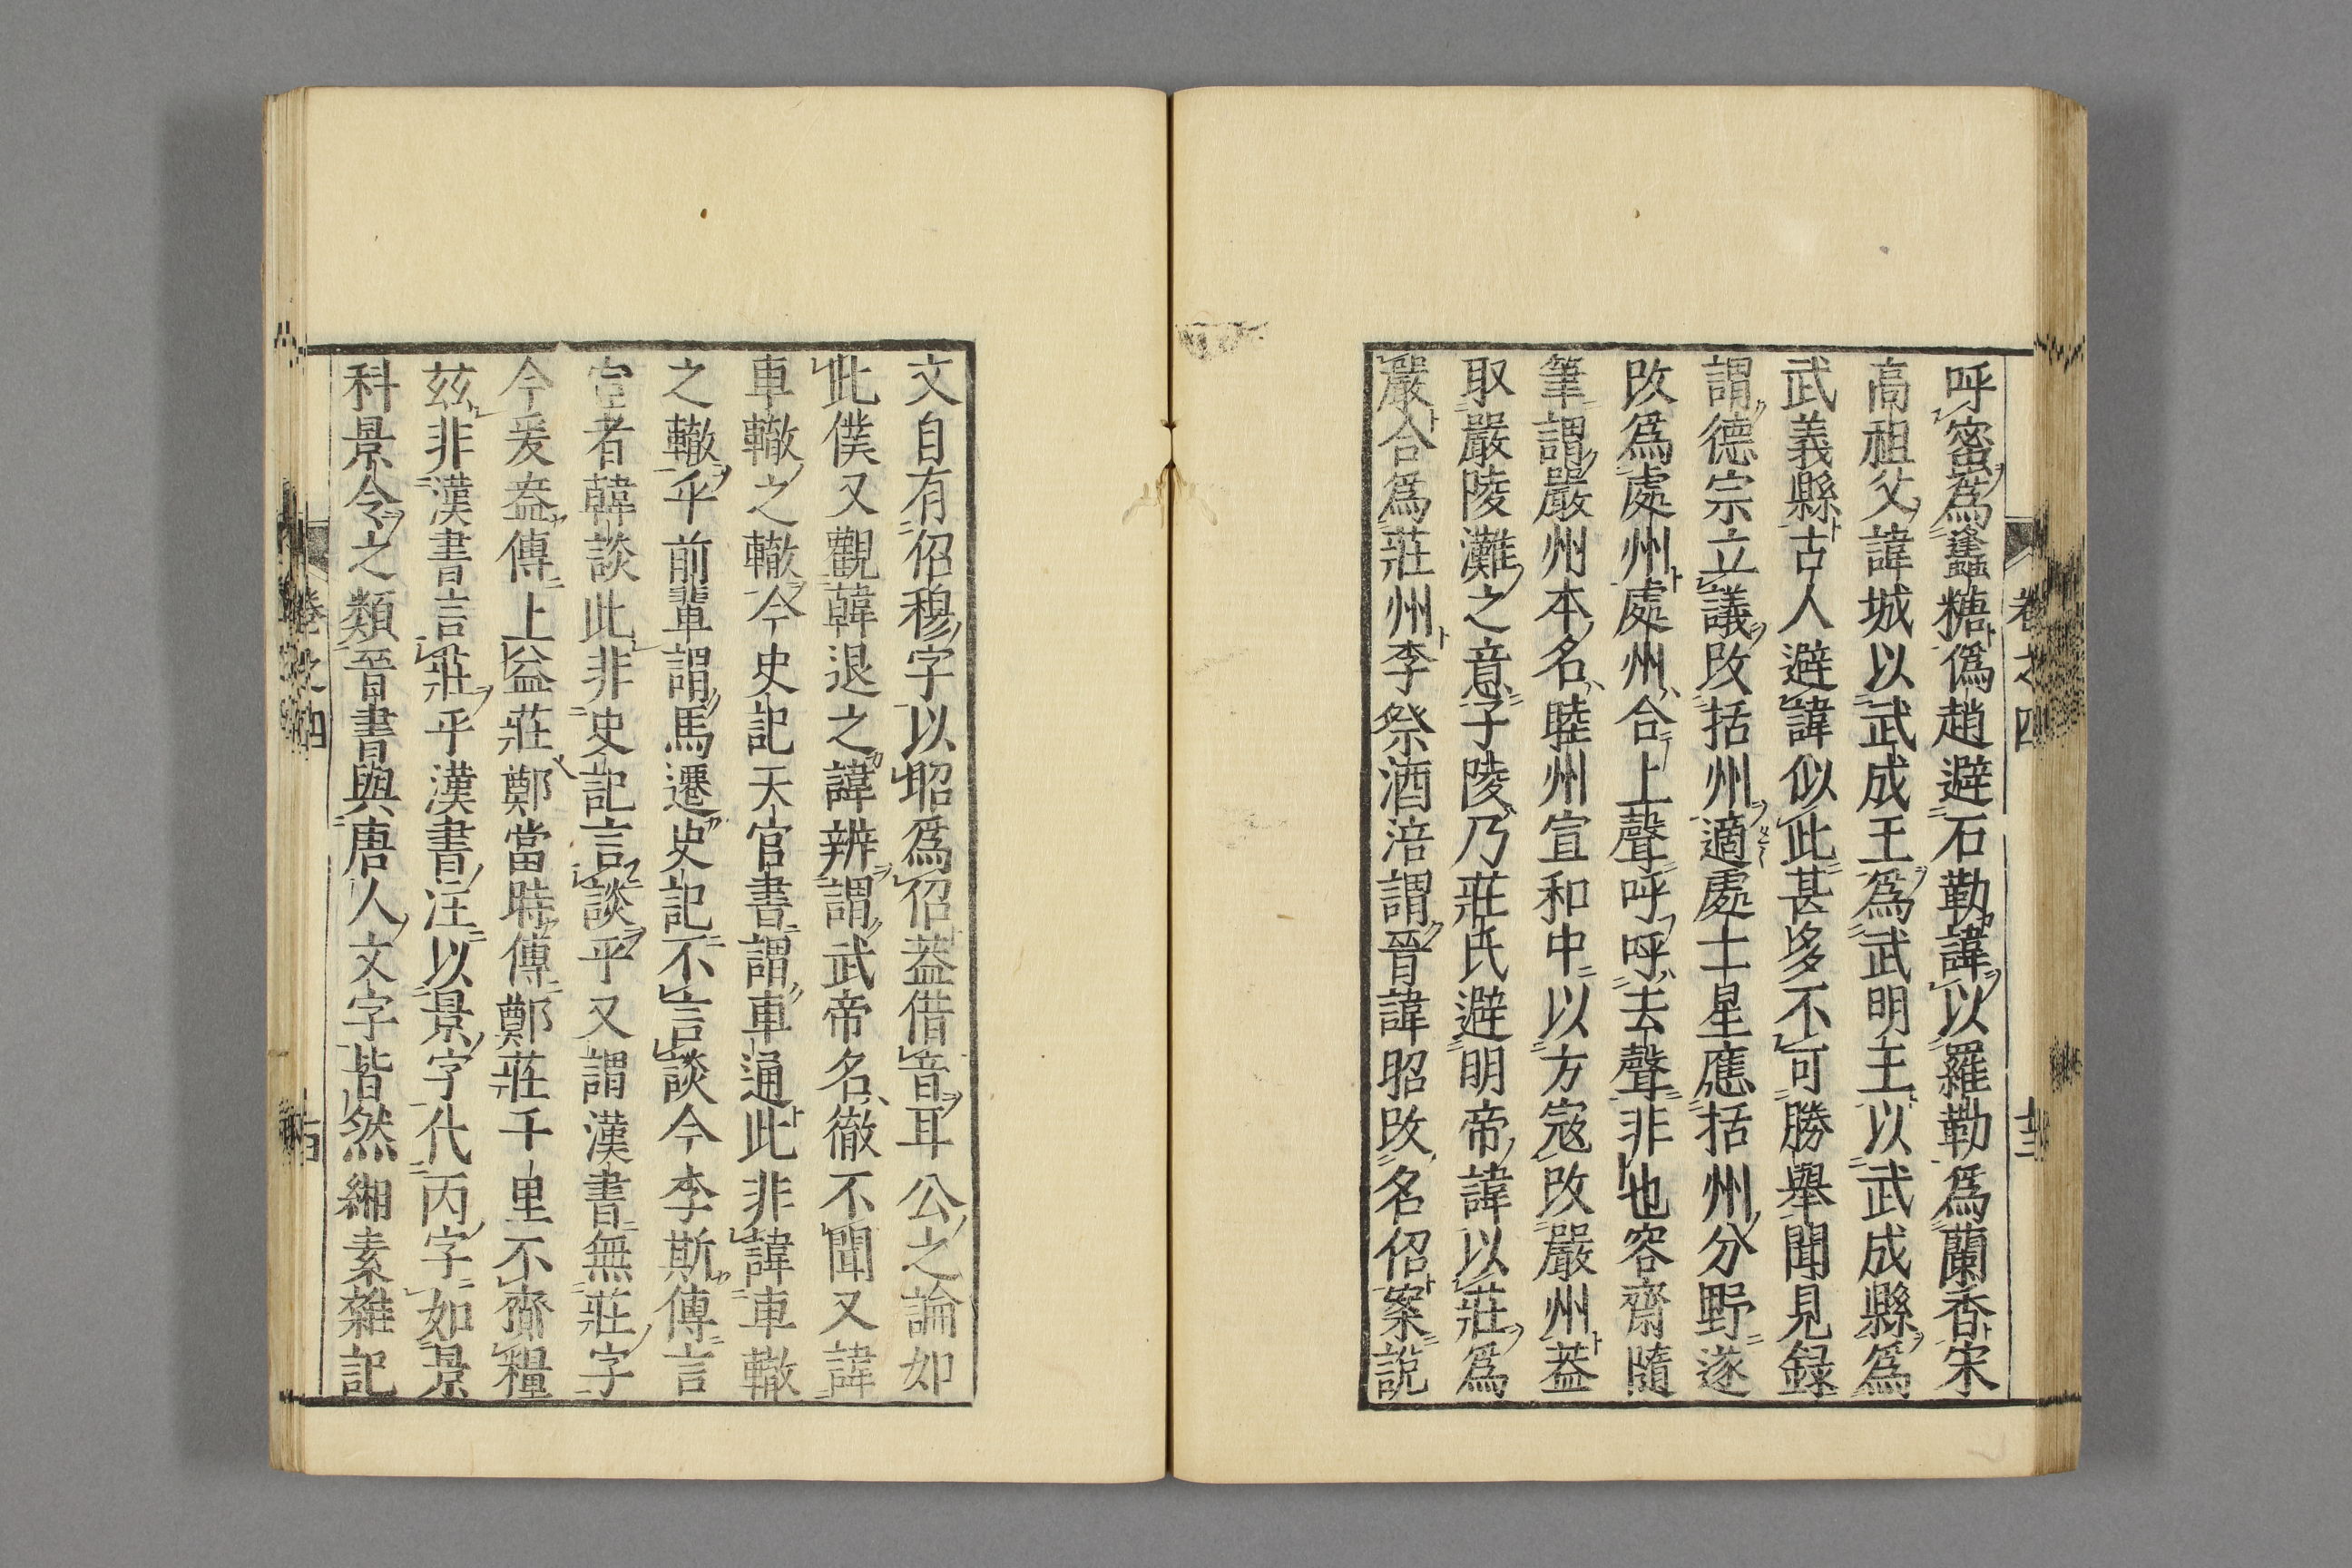 呼蜜爲蠭糖僞趙避石勒諱以羅勒爲蘭香宋
高祖父諱城以武成王爲武明王以武成縣爲
武義縣古人避諱似此甚多不可勝舉聞見録
謂德宗立議改括州適處士星應括州分野遂
改爲處州處州合上聲呼呼去聲非也容齋隨
筆謂嚴州本名睦州宣和中以方寇改嚴州葢
取嚴陵灘之意子陵乃莊氏避明帝諱以莊爲
嚴合爲莊州李祭酒涪謂晉諱昭改名佋案說
文自有佋穆字以昭爲佋葢借音耳公之論如
此僕又觀韓退之諱辨謂武帝名徹不聞又諱
車轍之轍今史記天官書謂車通此非諱車轍
之轍乎前輩謂馬遷史記不言談今李斯傳言
宦者韓談此非史記言談乎又謂漢書無莊字
今爰盎傳上益莊鄭當時傳鄭莊千里不齎糧
兹非漢書言莊乎漢書注以景字代丙字如景
科景令之類晉書與唐人文字皆然緗素雜記
卷之四
卷之四